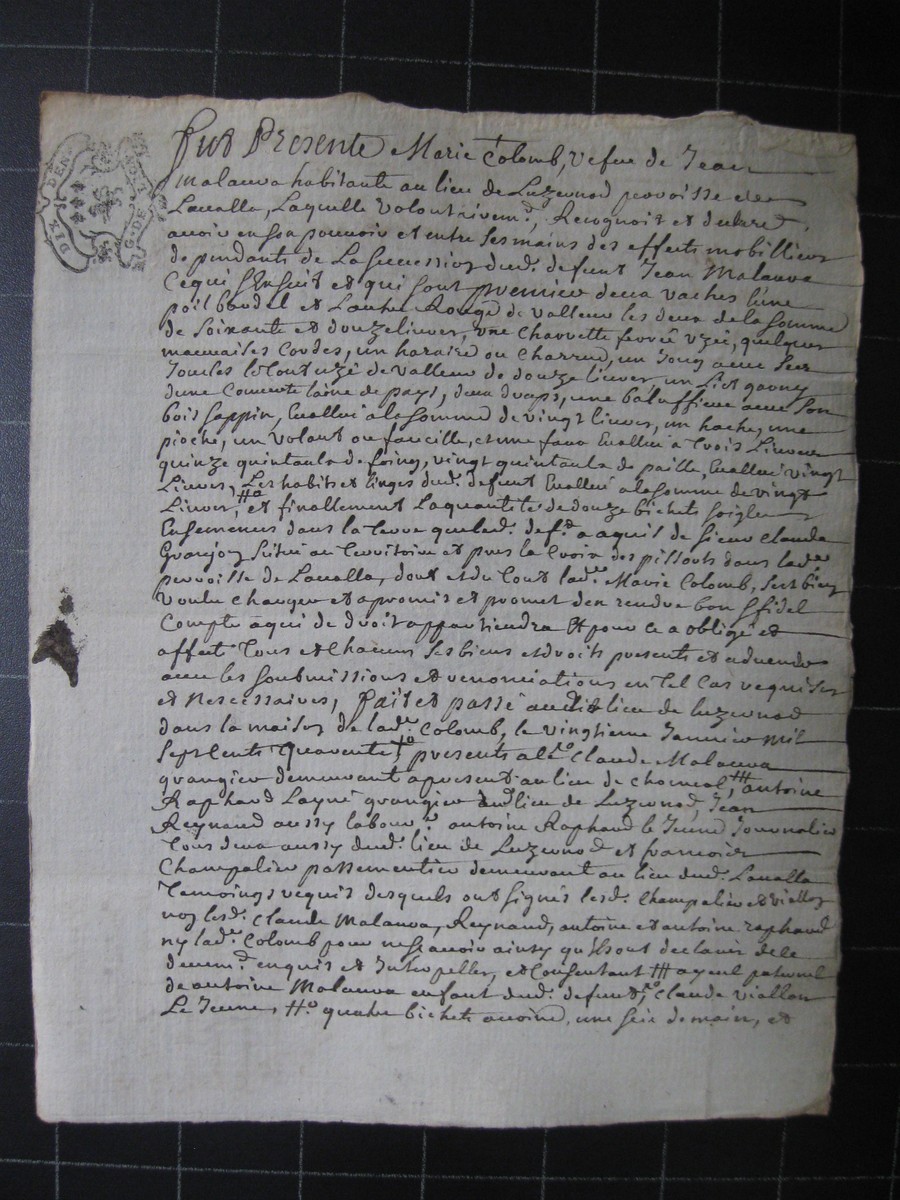 DIX DEN.
G. DE
Fut Presente Marie Colomb, vefue de Jean
Malauva habitante au lieu de Luzernod parroisse de
Lavalla, Laquelle volontairemt. Recognoit et declare
avoir en son pouvoir et entre ses mains des effects mobilliers
dependants de La succession dud. defunt Jean Malauva
Ce qui s'Ensuit et qui sont premier deux vaches L'une
poil bardel et Lautre Rouge de valleur les deux de la somme
de Soixante et douze livres, une Charrette ferrée uzée, quelques
mauvaises Cordes, un haraire ou Charrue, un Joug avec Ses
Joucles le tout uzé de valleur de douze livres, un Lict garny
d'une Couverte laine de pays, deux draps, une baluffiere avec Son
bois sappin, Evallué a la somme de vingt livres, un hache, une
pioche, un volant ou faucille, et une faux Evallué a trois Livres
quinze quintals de foing, vingt quintals de paille, Evallué vingt
Livres, Les habits et linges dud. defunt Evallué a la somme de vingt
Livres, et finallement La quantité de douze bichets soigle
Ensemencés dans la terre que led. deft. a aquis de sieur Claude
Granjon Scitué au territoire et pres la Croix des pissorts dans lad.
parroisse de Lavalla, dont et du tout lad. Marie Colomb, s'est bien
voulu charger et a promis et promet d'en rendre bon & fidel
Compte a qui de droit appartiendra Et pour ce a obligé et
affecté Tous et chacuns ses biens et droits presents et advenir
avec les soubmissions et renonciations en tel cas requises
et Nescessaires, Fait et passé audit lieu de Luzernod
dans la maison de lad. Colomb, le vingtieme Janvier mil
Sept Cents Quarente presents a Ce Claude Malauva
grangier demeurant a present au lieu de , antoine
Raphard Layné grangier dud. lieu de Luzernod, Jean
Reynaud aussy labourr. antoine Raphard le Jeune Journalier
tous deux aussy dud. lieu de Luzernod et francois
Champalier passementier demeurant au lieu dud. Lavalla
Temoings requis desquels ont signés lesd. Champalier et viallon
non lesd. Claude Malauva, Reynaud, antoine et antoine raphard
ny lad. Colomb pour ne scavoir ainsy qu'ils ont declairé de ce
deuemt. enquis et Interpeller, et Consentant ayeul paternel
de antoine Malauva enfant dud. defunt, Claude viallon
Le Jeune, quatre bichets avoine, une scie de main, et